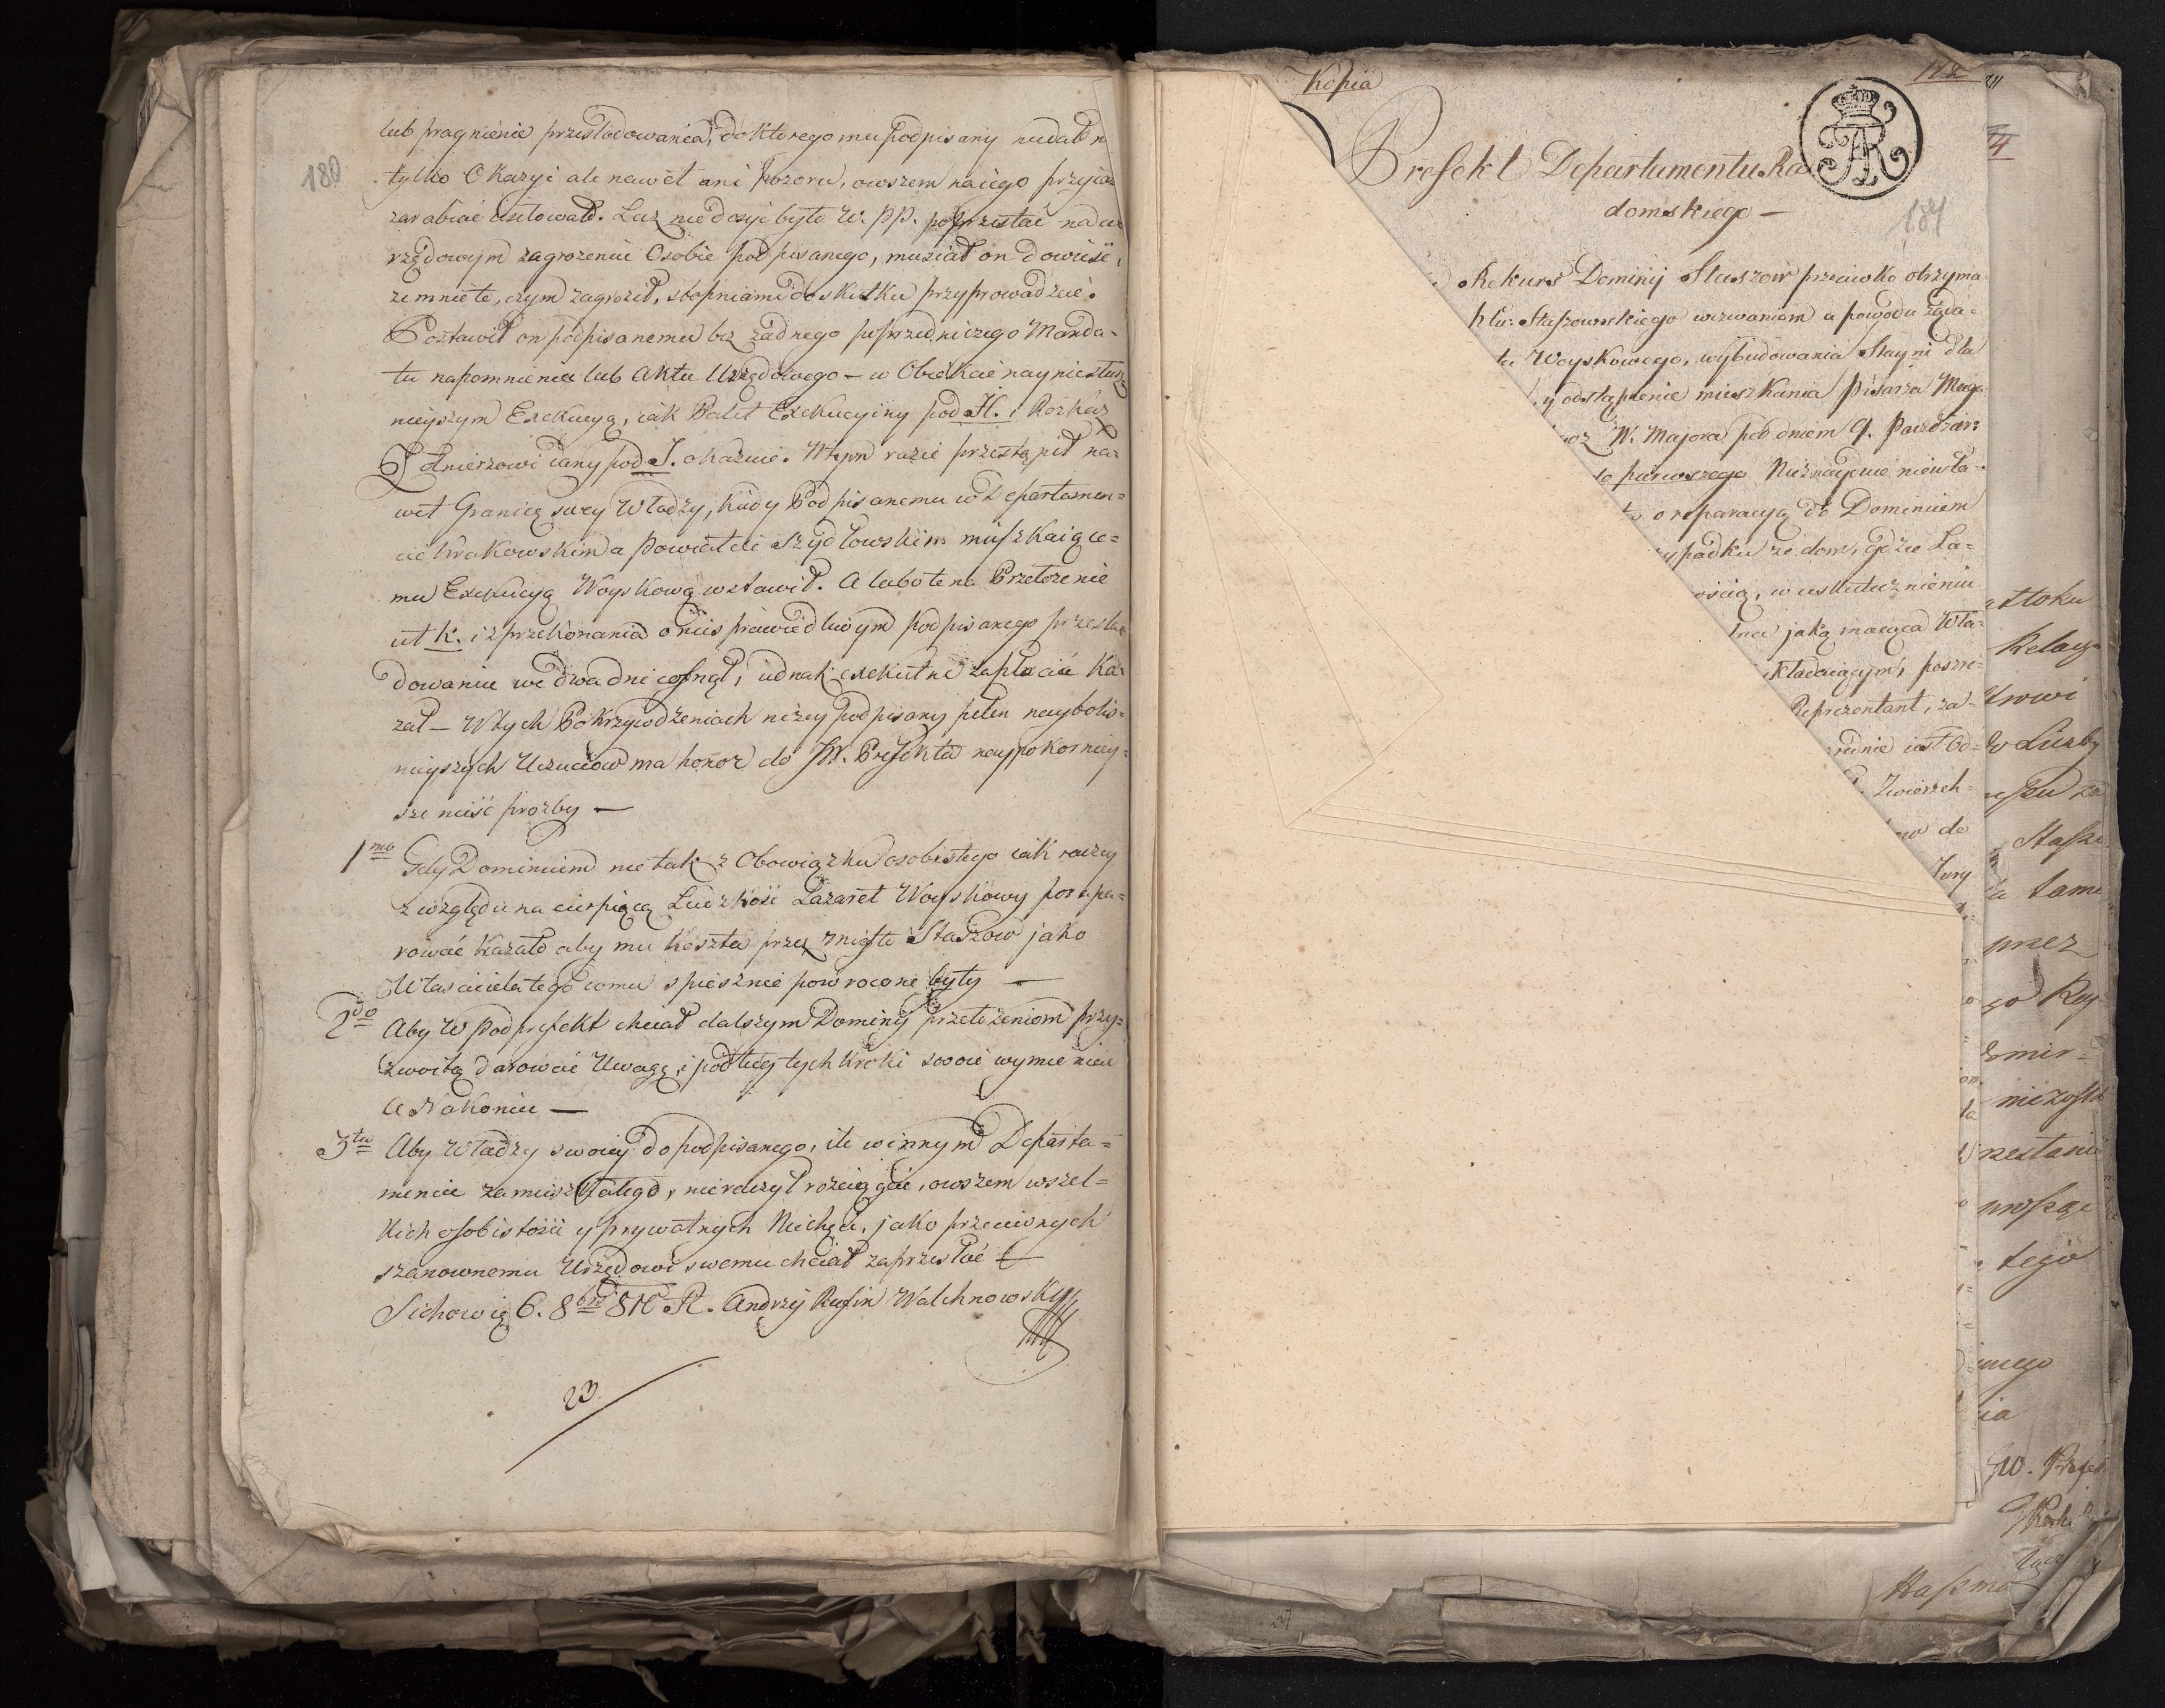 180
lub pragnienie prześladowania, do ktorego mu podpisany niedał n
tylko Okazyi ale nawet ani pozoru, owszem na iego przyiaz
zarabiać usiłował. Lecz nie dosyć było W. PP. poprzestać na u
rzędowym zagrożeniu Osobie podpisanego, musiał on dowieść,
że mnie te, czym zagroził, stopniami do skutku przyprowadzić.
Postawił on podpisanemu bez żadnego poprzedniczego Manda-
tu napomnienia lub Aktu Urzędowego – w Obiekcie nayniesłusz
nieyszym Exekucyą, iak Palet Exekucyiny pod H. i Rozkaz
Żołnierzowi dany pod J. okazuie. W tym razie przestąpił na-
wet Granicę swey Władzy, kiedy Podpisanemu w Departamen=
cie Krakowskim a Powiecie Szydłowskim mieszkaiące=
mu Exekucyą Woyskową wstawił. A lubo te na Przełożenie
ut K. i z przekonania o niesprawiedliwym podpisanego prześla
dowaniu we dwa dni cofnął, iednak exekutne zapłacić Ka-
zał – W tych Pokrzywdzeniach niżey podpisany pełen naybolis=
nieyszych Uczuciow ma honor do JW. Prefekta naypokorniey=
sze nieść prozby —
1mo Gdy Dominium nie tak z Obowiązku osobistego iak raczey
z względu na cierpiącą Ludzkość Lazaret Woyskowy porepa=
rować kazało aby mu koszta przez miasto Staszow jako
Właściciela tego domu spiesznie powrocone były —
2do Aby W Podprefekt chciał dalszym Dominij przełożeniom przy=
zwoitą darować Uwagę, i podług tych kroki swoie wymie nieu
A Nakoniec —
3tio Aby Władzy swoiey do podpisanego, ile w innym Departa=
mencie zamieszkałego, nieraczył rozciągać, owszem wszel=
kich osobistości y prywatnych Niechęci, jako przeciwnych
szanownemu Urzędowi swemu chciał zaprzestać
Sichow d. 6. 8bra 810 R. Andrzey Rufin Walchnowski
23
Kopia
Prefekt Departamentu Ra
domskiego —
181
Rekurs Dominij Staszow przeciwko otrzyma
kta: Staszowskiego wezwaniom a powodu żąda=
tu Woyskowego, wybudowania Stayni dla
y odstąpienie mieszkania Pisarza Maga
W. Majora pod dniem 9. Paździer:
do pierwszego Nieznayduie niewła-
o reparacyą do Dominium
ypadku że dom, gdzie La=
ością, w uskutecznieniu
jaką maiąca Wła=
kładaiącym, poszre=
Reprezentant, za=
średnie iest Od=
Zwierzch=
ow do
Jury-
attoku
Relacy
W Liczby
Stasz
a tame
przez
go Rey
nie zost
rzestani
tego
mego
ia
W. Prefek